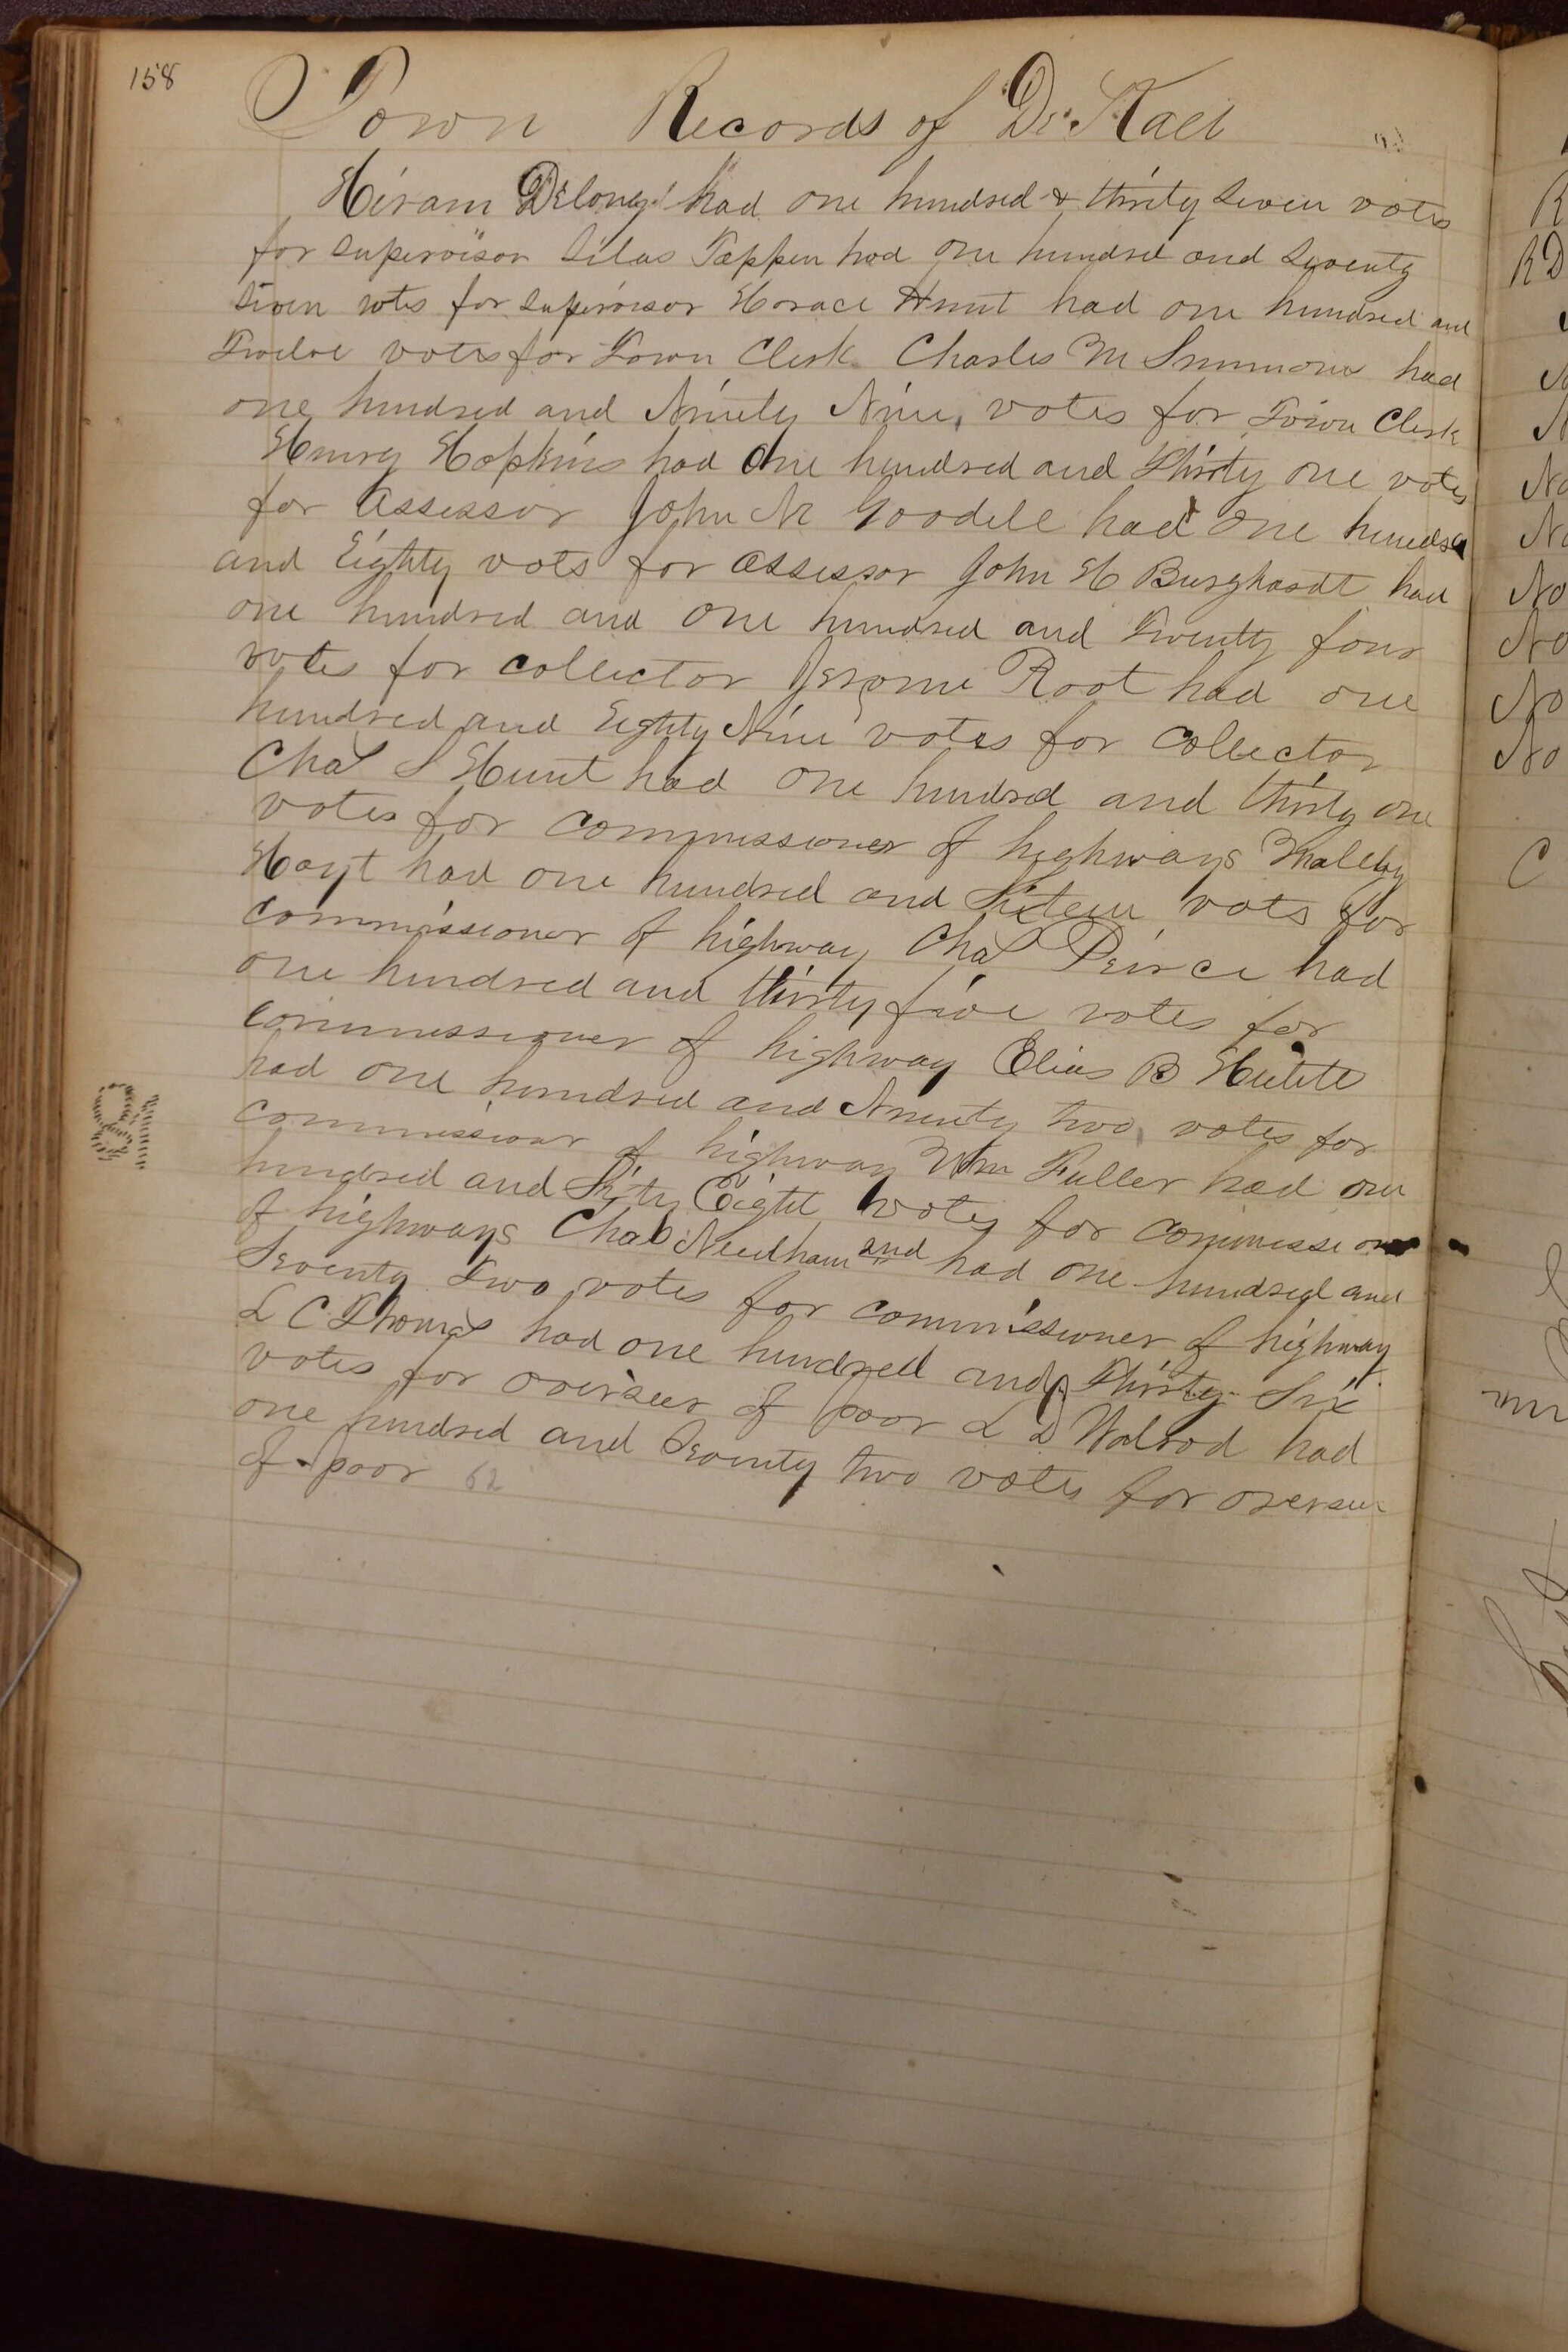 158
Town Records of De Kalb
Hiram Delong had one hundred & thirty seven votes
for supervisor Silas Tappen had one hundred and seventy
seven votes for supervisor Horace Hunt had one hundred and
Twelve votes for Town Clerk Charles M Simmons had
one hundred and Ninety Nine votes for Town Clerk
Henry Hopkins had One hundred and Thirty one votes
for Assessor John N Goodell had one hundred
and Eighty vots for assessor John H Burghardt had
one hundred and one hundred and Twenty four
votes for collector Jerome Root had one
hundred and Eighty Nine votes for collector
Chas S Hunt had one hundred and thirty one
votes for commissioner of highways
Hoyt had one hundred and Sixteen vots for
commissioner of highway Chas Peirce had
one hundred and thirty five votes for
commissioner of highway Elias B
had one hundred and Ninety two votes for
commissioner of highway Wm Fuller had one
hundred and Sixty Eight votes for commissioner
of highways Chas Needham and had one hundred and
Seventy Two votes for commissioner of highway
L C Thomas had one hundred and Thirty Six
votes for overseer of poor L D Walrod had
one hundred and Seventy two votes for overseer
of poor 62